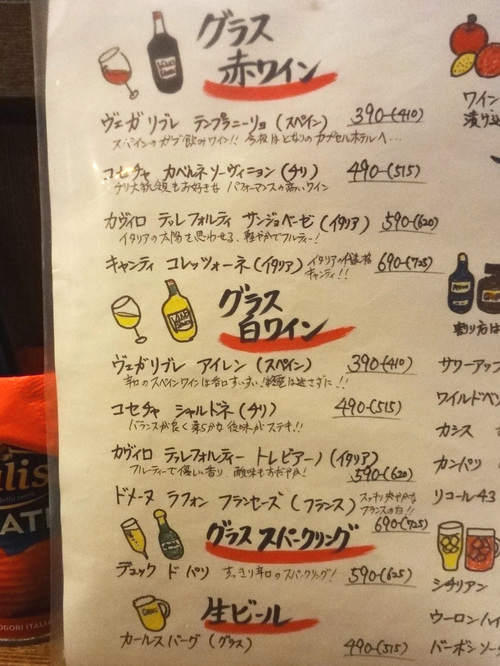 グラス
赤ワイン
ヴェガ リブレ テンプラニーリョ (スペイン) 390-(410)
スペインのガブ飲みワイン!! 今夜はとなりのカプセルホテルへ…
コセチャ カベルネソーヴィニョン (チリ) 490-(515)
チリ大統領もお好きな パフォーマンスの高いワイン
カヴィロ テッレフォルティ サンジョベーゼ (イタリア) 590-(620)
イタリアの太陽を思わせる、軽やかでフルーティー!
キャンティ コレッツォーネ (イタリア) 690-(725)
イタリアの
キャンティ!!
グラス
白ワイン
ヴェガリブレ アイレン (スペイン) 390-(410)
辛口のスペインワインは香りすいすい!
コセチャ シャルドネ (チリ) 490-(515)
バランスが良く柔らかな後味がステキ!!
カヴィロ テッレフォルティー トレビアーノ (イタリア)
フルーティーで優しい香り、酸味もおだやか!
590-(620)
ドメーヌ ラフォン フランセーズ (フランス)
スッキリ爽やかな
フランスの白!!
690-(725)
グラス スパークリング
デュック ド パリ すっきり辛口のスパークリング! 590-(625)
生ビール
カールスバーグ (グラス) 490-(515)
ワイン
漬け込
割り方は
サワーアップ
ワイルドベリ
カシス
カンパリ
リコール43
シチリアン
ウーロンハイ
バーボンソー